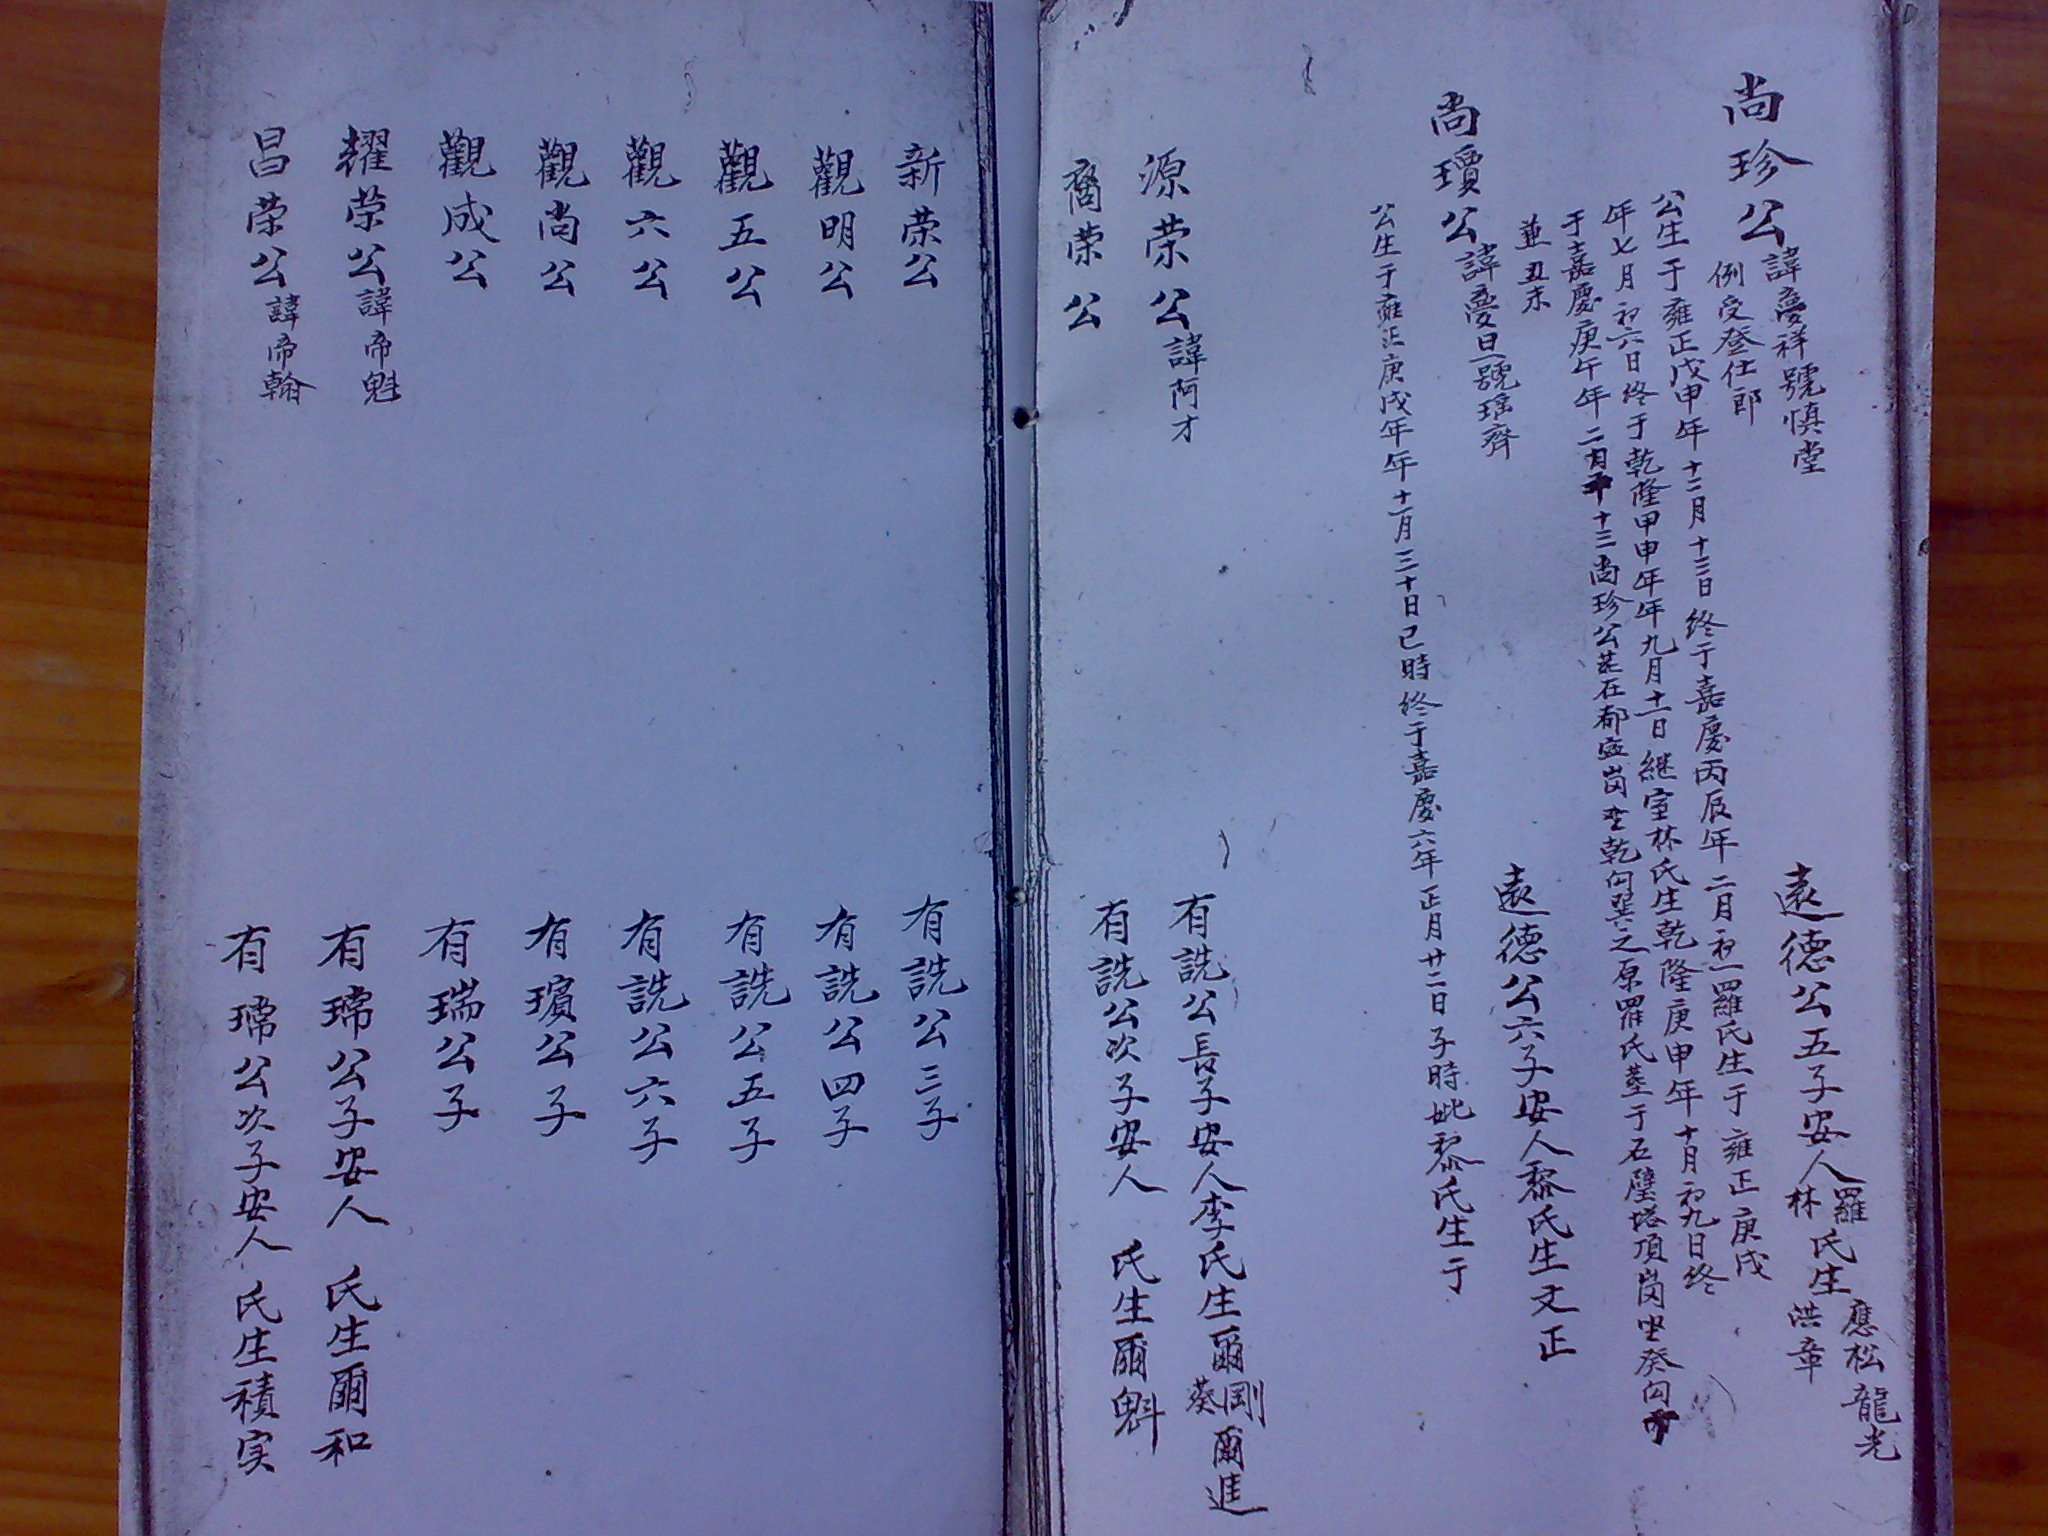 尚珍公諱夢祥號慎堂
例受登仕郎
遠德公五子安人羅林氏生應松龍光洪章
公生于雍正戊申年十二月十三日終于嘉慶丙辰年二月初一羅氏生于雍正庚戌
年七月初六日終于乾隆甲申年年九月十一日継室林氏生乾隆庚申年十月初九日終
于嘉慶庚午年二月十三尚珍公在都岗乾向巽之原羅氏墓于石壁塔頂岗坐癸向
兼丑未
尚璸公諱夢日號瑶齊
遠德公六子安人黎氏生文正
公生于雍正庚戌年年十一月三十日已時終于嘉慶六年正月廿二日子時妣黎氏生于
源荣公諱阿才
有詵公長子安人李氏生爾剛葵爾進
裔荣公
有詵公次子安人 氏生爾魁
新荣公
有詵公三子
觀明公
有詵公四子
觀五公
有詵公五子
觀六公
有詵公六子
觀尚公
有璸公子
觀成公
有瑞公子
耀荣公諱帝魁
有瑞公子安人 氏生爾和
昌荣公諱帝翰
有公次子安人 氏生積实